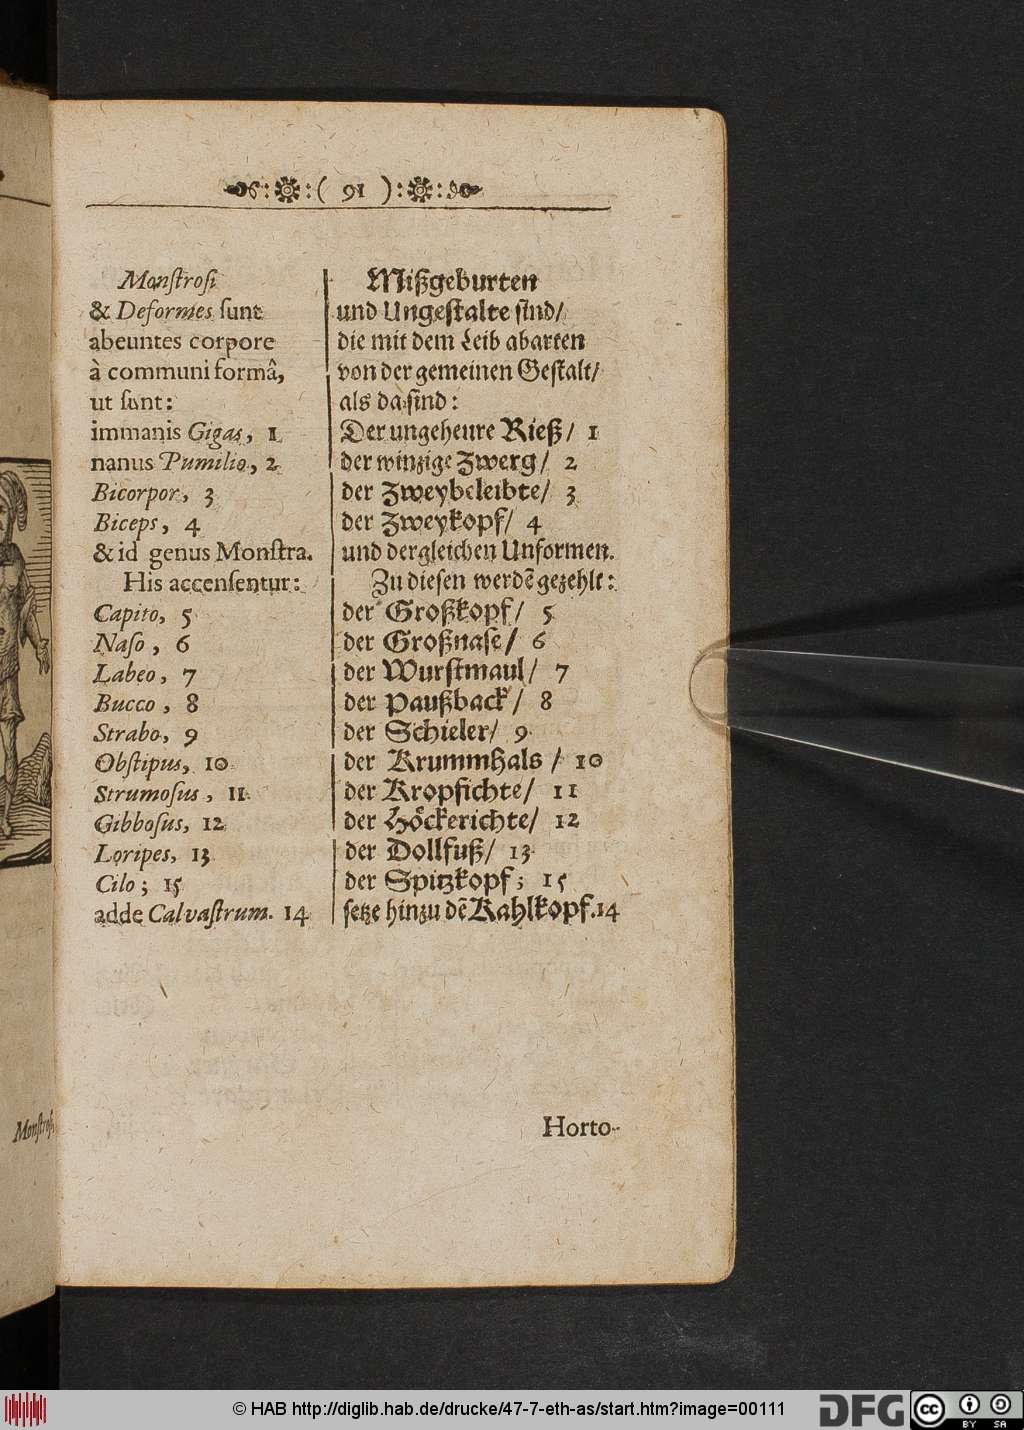 ( 91 )
Monſtroſi
& Deformes ſunt
abeuntes corpore
à communi formâ,
ut ſunt:
immanis Gigas, 1
nanus Pumilio, 2
Bicorpor, 3
Biceps, 4
& id genus Monſtra.
His accenſentur:
Capito, 5
Naſo, 6
Labeo, 7
Bucco, 8
Strabo, 9
Obſtipus, 10
Strumoſus, 11
Gibboſus, 12
Loripes, 13
Cilo; 15
adde Calvaſtrum. 14
Mißgeburten
und Ungeſtalte ſind/
die mit dem Leib abarten
von der gemeinen Geſtalt/
als da ſind:
Der ungeheure Rieß/ 1
der winzige Zwerg/ 2
der Zweybeleibte/ 3
der Zweykopf/ 4
und dergleichen Unformen.
Zu dieſen werdē gezehlt:
der Großkopf/ 5
der Großnaſe/ 6
der Wurſtmaul/ 7
der Paußback/ 8
der Schieler/ 9
der Krummhals/ 10
der Kropfichte/ 11
der Höckerichte/ 12
der Dollfuß/ 13
der Spitzkopf; 15
ſetze hinzu dē Kahlkopf. 14
Horto-
Monſtroſi
© HAB http://diglib.hab.de/drucke/47-7-eth-as/start.htm?image=00111
DFG
cc
BY SA